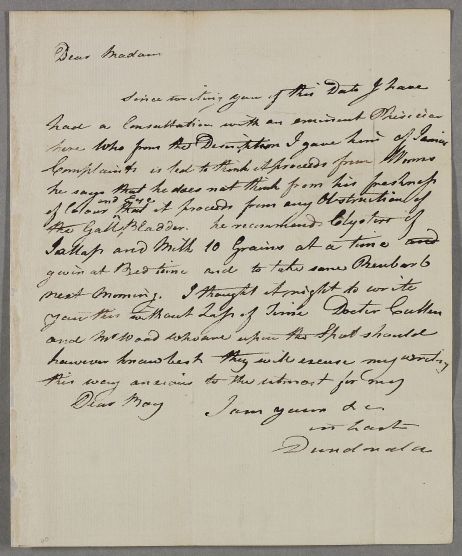 Dear Madam
Since writing you of this Date I have
had a Consultation with an eminent Phisician
here Who from the Description I gave him of James
Complaints is led to think it proceeds from Worms
he says that he does not think from his freshness
of Colour and Eye that it proceeds from any Obstruction of
the Gall Bladder. he recommends Clysters of
Jallap and Milk 10 Grains at a time and
given at Bed time and to take some Rheubarb
next Morning. I thought it right to write
you this without Loss of Time Doctor Cullen
and Mr Wood who are upon the Spot should
however know best they will excuse my writing
this way anxious to the utmost for my
Dear Boy I am yours &c
in hast
Dundonald